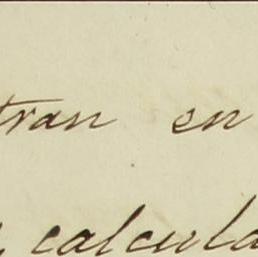 tran en
calcula